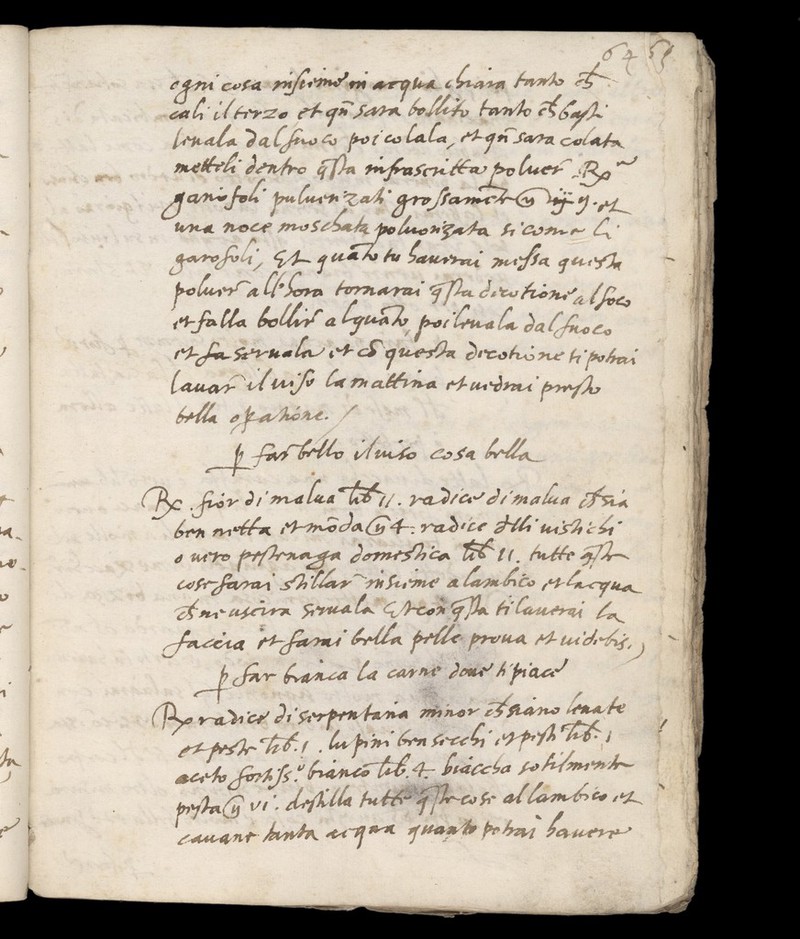 64 65
ogni cosa insieme in acqua chiara tanto ch̄
cali il terzo, et qn̄ sara bollito tanto ch̄ basti
leuala dal fuoco poi colala, et qn̄ sara colata
metteli dentro q̄sta infrascritta poluer̄ . Rx̄
garofoli puluerizati grossamēte ℥ et
una noce moschata poluorizata si come li
garofoli, Et quāto tu hauerai messa questa
poluer̄ all'hora tornarai q̄sta decotione al foco
et falla bollir̄ alquāto, poi leuala dal fuoco
et fa seruala et cō questa decotione ti potrai
lauar̄ il uiso la mattina et uedrai presto
bella oꝑatione. /
ꝑ far bello il uiso cosa bella
Rx. fior di malua lib̄ II. radice di malua ch̄ sia
ben netta et mōda ℥ 4. radice d̄lli uistichi
o uero pestenaga domestica lib̄ II. tutte q̄ste
cose farai stillar̄ insieme a lambico et lacqua
ch̄ ne uscira seruala Et con q̄sta ti lauerai la
faccia et farai bella pelle proua et uidebis.
ꝑ far bianca la carne doue ti piace
Rx radice di serpentaria minor ch̄ siano leuate
et peste lib̄. I. lupini ben secchi et pesti lib̄. I
aceto fortiss.º bianco lib̄. 4. biaccha sotilmente
pesta ℥ VI. destilla tutte q̄ste cose allambico et
cauane tanta acqua quanto potrai hauere